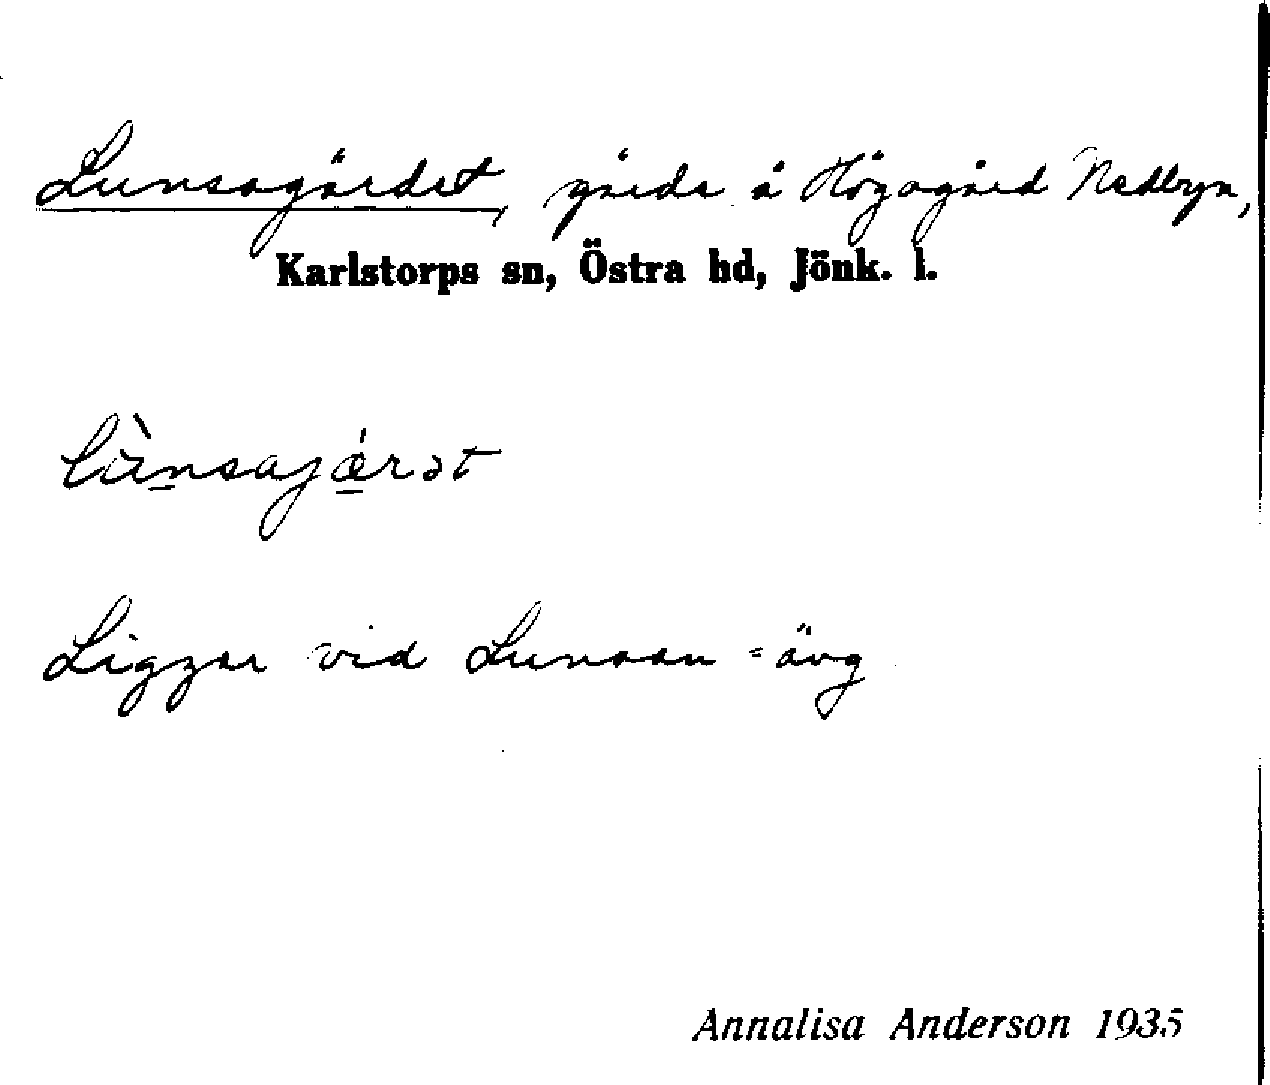 Lunsagärdet, gärde å Högagärd Nedbyn,
Karlstorps sn, Östra hd, Jönk. l.
lùnsajǽrət
Ligger vid Lunsan = äng
Annalisa Anderson 1935